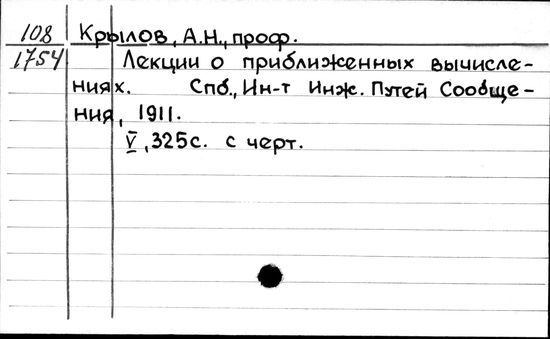 108 Крылов, А.Н., проф.
1754 Лекции о приближенных вычисле-
ниях. Спб., Ин-т Инж. Путей Сообще-
ния, 1911.
V, 325с. с черт.